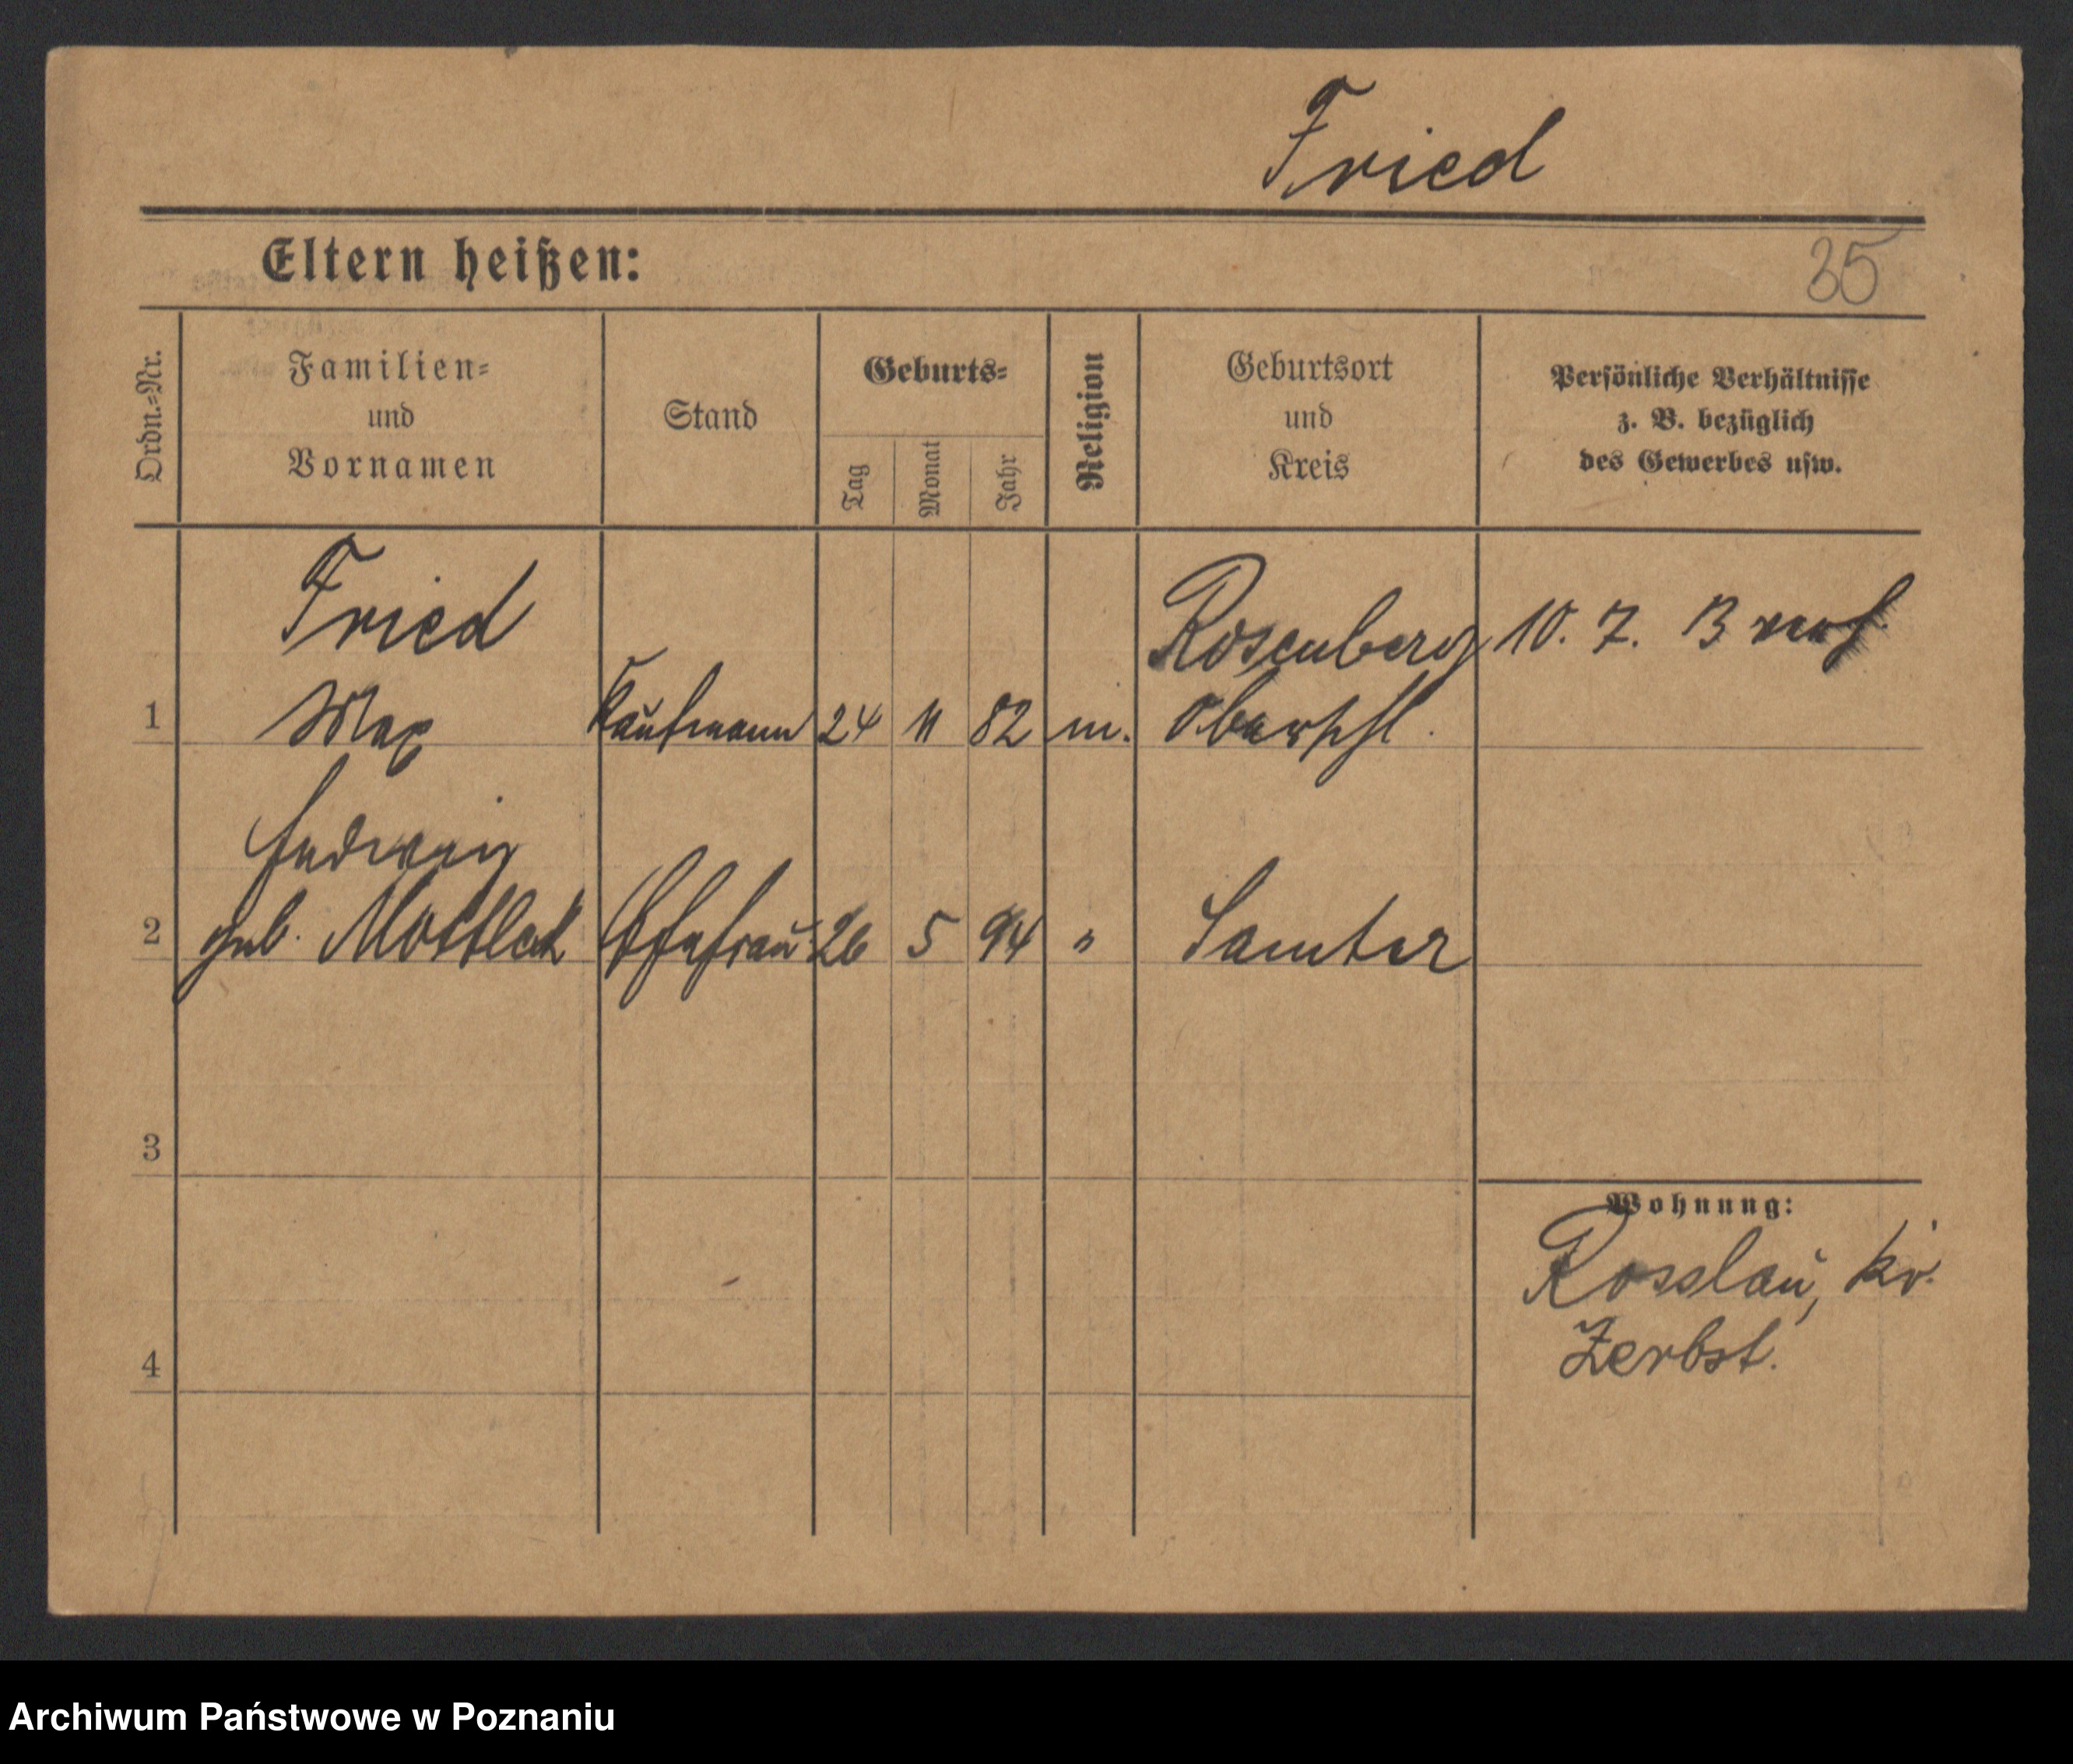 Fried
Eltern heißen:
35
Ordn.-Nr.
Familien-
und
Vornamen
Stand
Geburts-
Tag
Monat
Jahr
Religion
Geburtsort
und
Kreis
Persönliche Verhältnisse
z. B. bezüglich
des Gewerbes usw.
Fried
Rosenberg
10. 7. 13
1
Max
Kaufmann
24
11
82
m.
2
geb. Mottlek
Ehefrau
26
5
94
"
Samter
3
Wohnung:
Rosslau, Kr.
Zerbst.
4
Archiwum Państwowe w Poznaniu